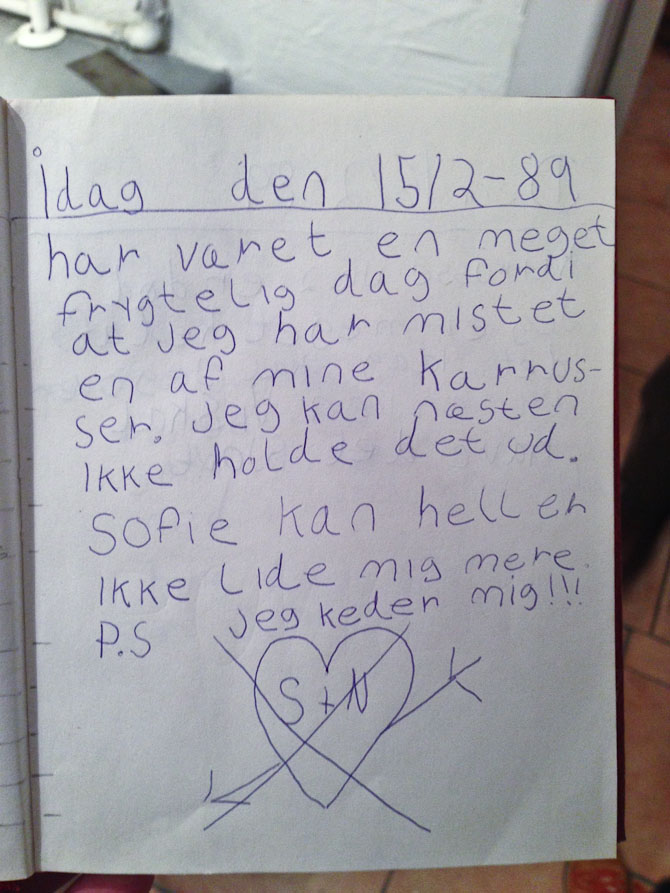 idag den 15/2-89
har været en meget
frygtelig dag fordi
at jeg har mistet
en af mine karrus-
ser. jeg kan næsten
ikke holde det ud.
Sofie kan heller
ikke lide mig mere.
P.S jeg keder mig!!!
S+N